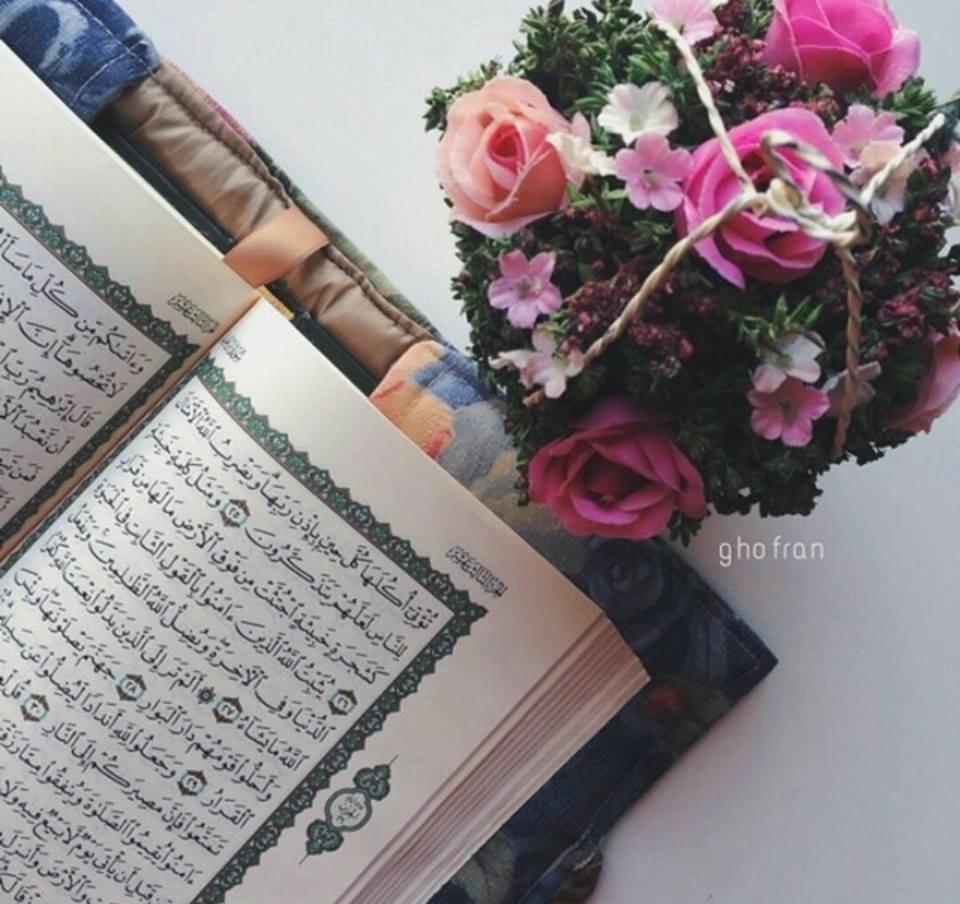 تُؤْتِىٓ أُكُلَهَا كُلَّ حِينٍۭ بِإِذْنِ رَبِّهَا ۗ وَيَضْرِبُ ٱللَّهُ ٱلْأَمْثَالَ
لِلنَّاسِ لَعَلَّهُمْ يَتَذَكَّرُونَ ٢٥ وَمَثَلُ كَلِمَةٍ خَبِيثَةٍ
كَشَجَرَةٍ خَبِيثَةٍ ٱجْتُثَّتْ مِن فَوْقِ ٱلْأَرْضِ مَا لَهَا مِن قَرَارٍ
٢٦ يُثَبِّتُ ٱللَّهُ ٱلَّذِينَ ءَامَنُوا۟ بِٱلْقَوْلِ ٱلثَّابِتِ فِى ٱلْحَيَوٰةِ
ٱلدُّنْيَا وَفِى ٱلْءَاخِرَةِ ۖ وَيُضِلُّ ٱللَّهُ ٱلظَّٰلِمِينَ ۚ وَيَفْعَلُ
ٱللَّهُ مَا يَشَآءُ ٢٧ ۞ أَلَمْ تَرَ إِلَى ٱلَّذِينَ بَدَّلُوا۟ نِعْمَتَ ٱللَّهِ كُفْرًا
وَأَحَلُّوا۟ قَوْمَهُمْ دَارَ ٱلْبَوَارِ ٢٨ جَهَنَّمَ يَصْلَوْنَهَا ۖ وَبِئْسَ
ٱلْقَرَارُ ٢٩ وَجَعَلُوا۟ لِلَّهِ أَندَادًا لِّيُضِلُّوا۟ عَن
تَمَتَّعُوا۟ فَإِنَّ مَصِيرَكُمْ إِلَى ٱلنَّارِ ٣٠ قُل
ءَامَنُوا۟ يُقِيمُوا۟ ٱلصَّلَوٰةَ وَيُنفِقُوا۟ مِمَّا
قَبْلِ أَن يَأْتِىَ يَوْمٌ لَّا بَيْعٌ فِيهِ وَلَا
وَٱلْأَرْضَ وَأَنزَلَ
وَءَاتَىٰكُم مِّن كُلِّ مَا
لَا تُحْصُوهَآ ۗ إِنَّ
قَالَ إِبْرَٰهِيمُ رَبِّ
أَن نَّعْبُدَ
ghofran